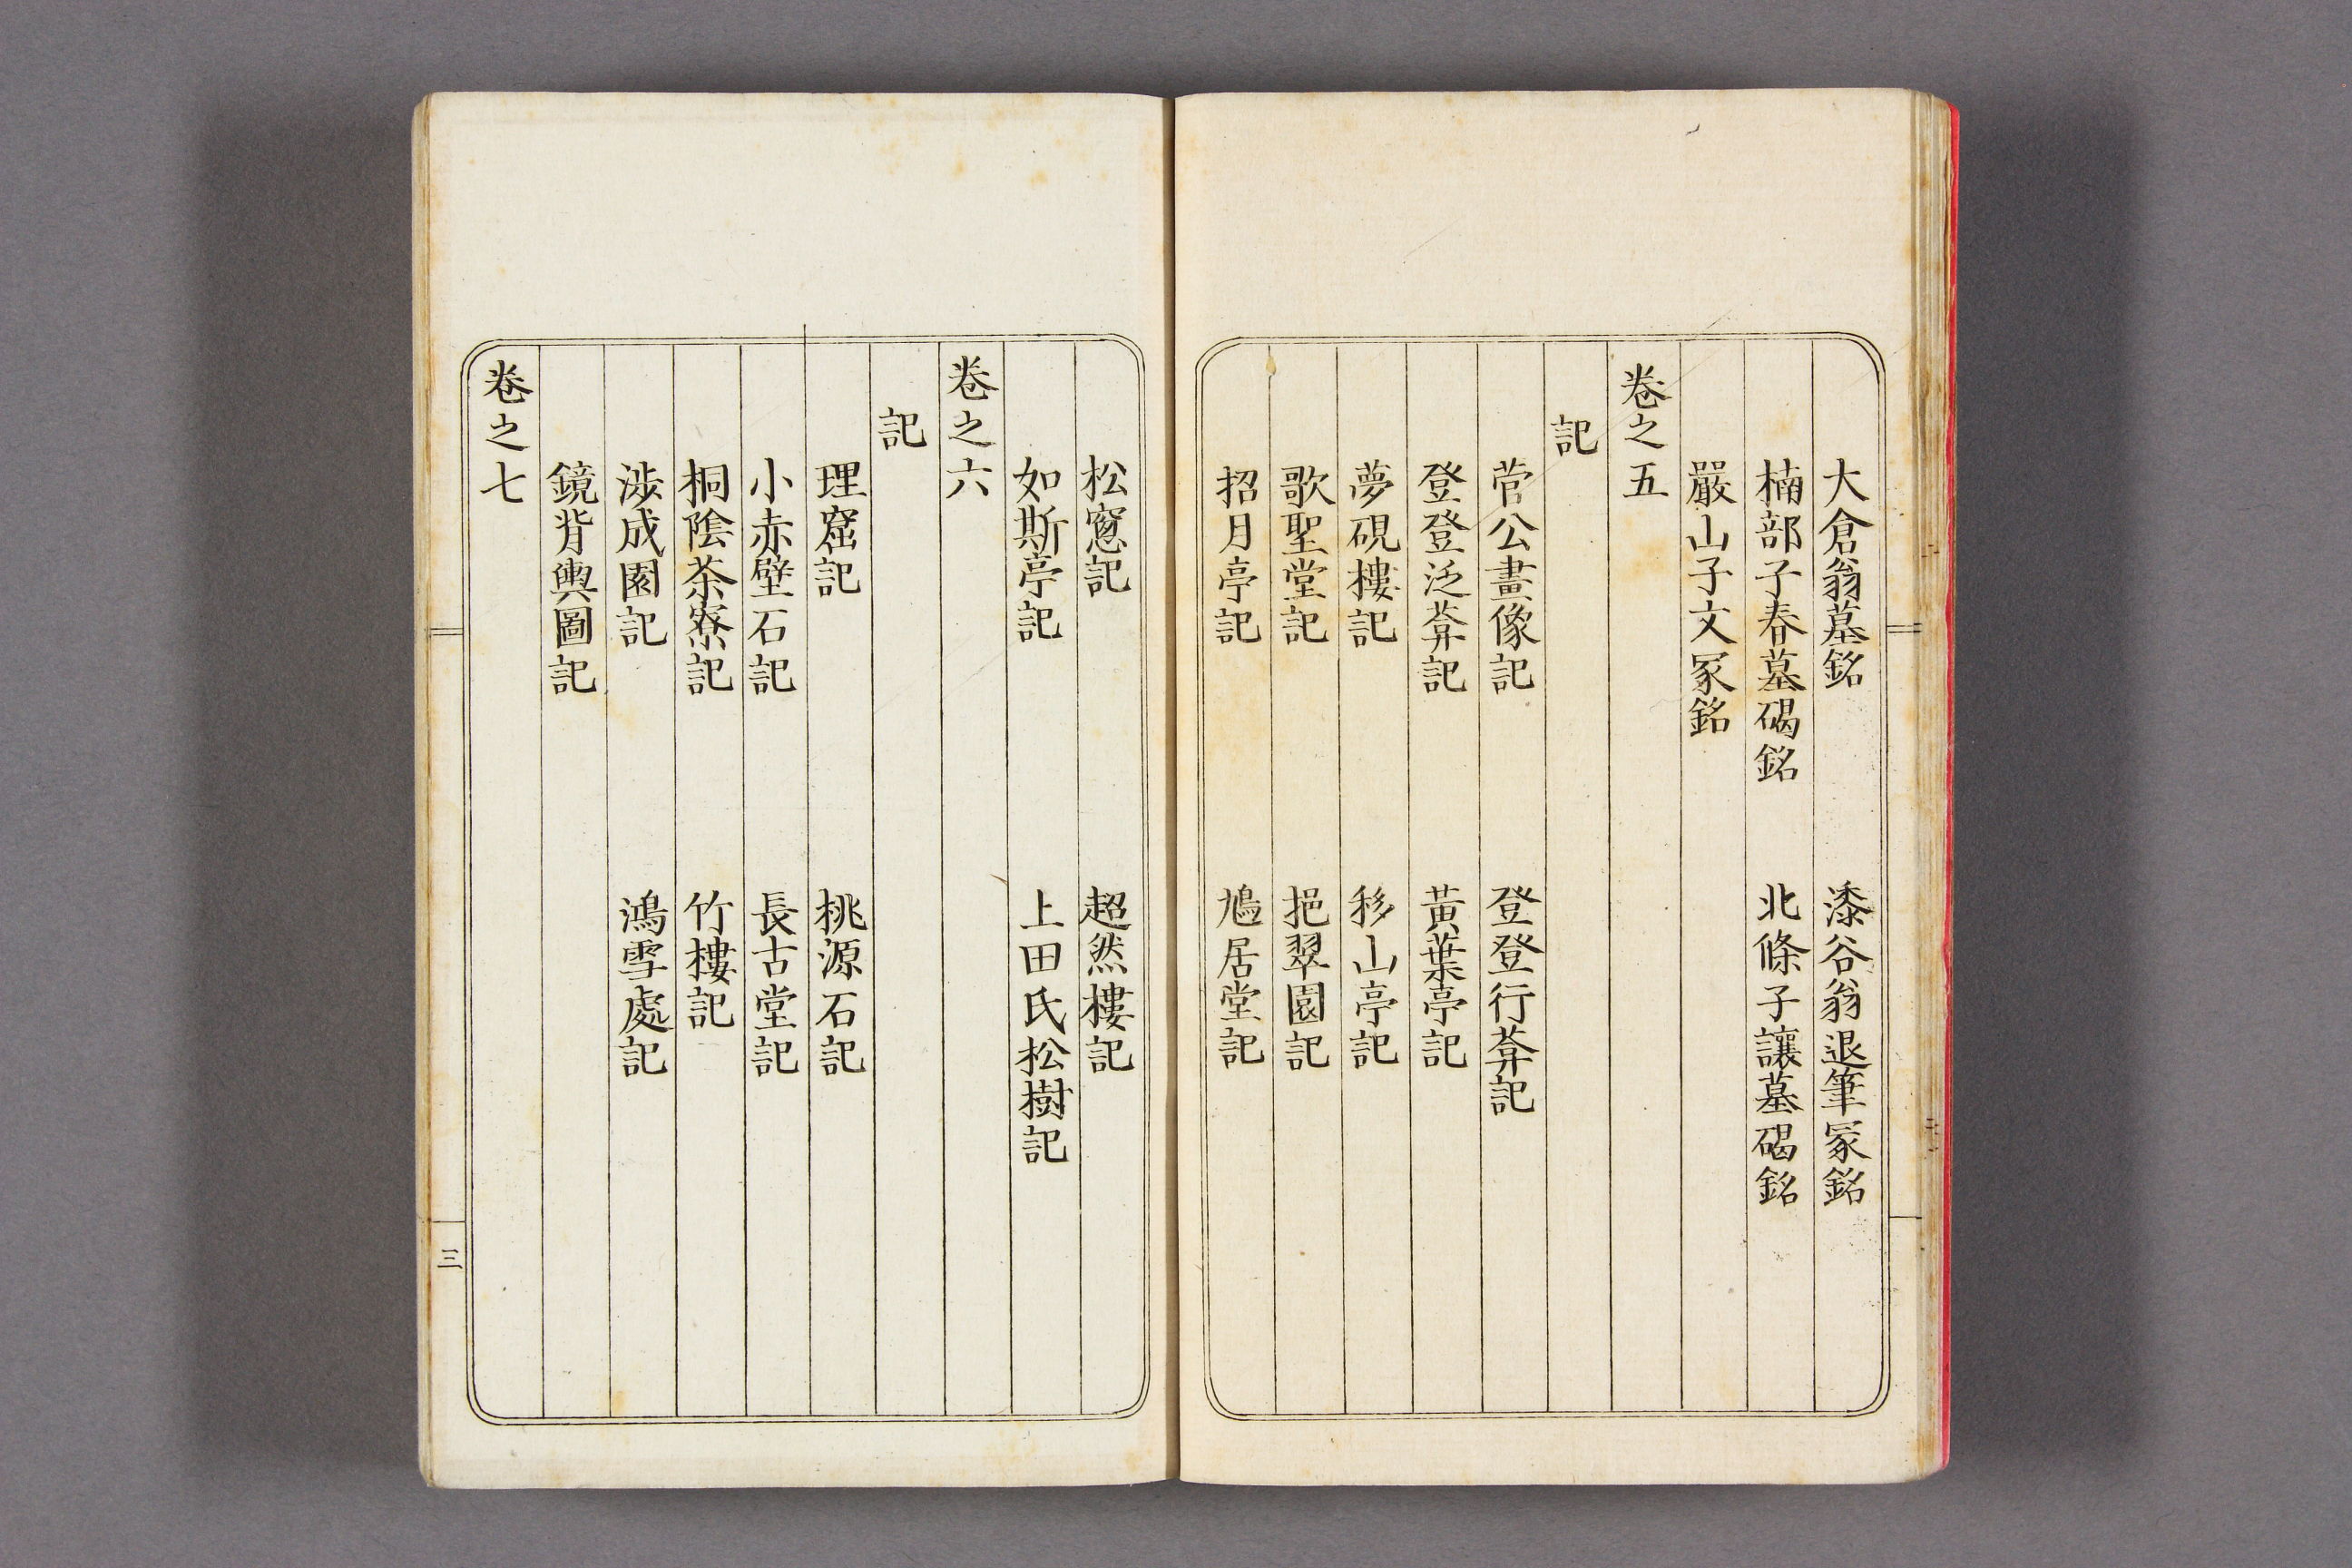 大倉翁墓銘　漆谷翁退筆冢銘
楠部子春墓碣銘　北條子讓墓碣銘
嚴山子文冢銘
卷之五
記
菅公畫像記　登登行葊記
登登泛葊記　黃葉亭記
夢硯樓記　移山亭記
歌聖堂記　挹翠園記
招月亭記　鳩居堂記
松窻記　超然樓記
如斯亭記　上田氏松樹記
卷之六
記
理窟記　桃源石記
小赤壁石記　長古堂記
桐陰茶寮記　竹樓記
涉成園記　鴻雪處記
鏡背輿圖記
卷之七
三